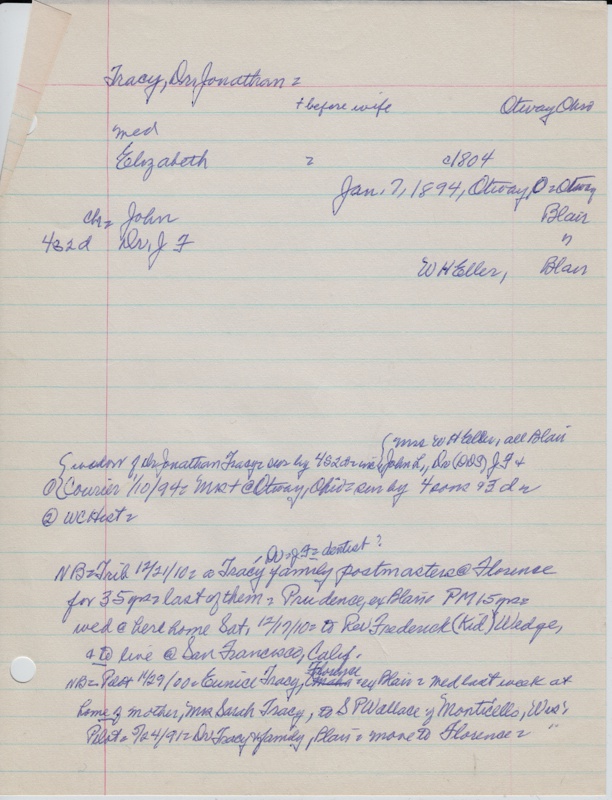 Tracy, Dr. Jonathan =
+ before wife Otway Ohio
med
Elizabeth = c1804
Jan. 7, 1894, Otway, O = Otway
ch = John Blair
4s 2d Dr. J F "
W H Eller, Blair
{ Mrs W H Eller, all Blair
{ widow of Dr Jonathan Tracy = sur by 4s 2d = inc { John L, Dr (DDS) J F +
① { Courier 1/10/94 = Mrs + @ Otway, Ohio = sur by 4 sons + 2 d =
② WCHist =
Dr = J F = dentist ?
NB = Trib 12/21/10 = a Tracy family postmasters @ Florence
for 35 yrs = last of them = Prudence, ex Blair = PM 15 yrs =
wed @ her home Sat, 12/17/10 = to Rev Frederick (Kid) Wedge,
+ to live @ San Francisco, Calif.
Florence
NB = Pilot 11/29/00 = Eunice Tracy, = ex Blair = med last week at
home of mother, Mrs Sarah Tracy, to S P Wallace of Monticello, Wis.
Pilot = 9/24/91 = Dr Tracy + family, Blair = move to Florence = "